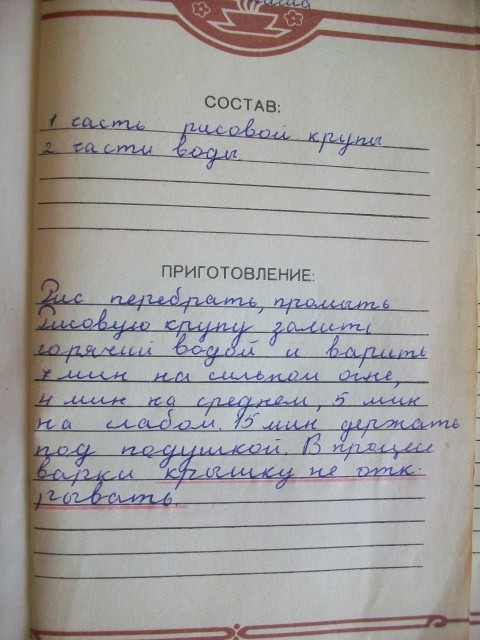 СОСТАВ:
1 часть рисовой крупы
2 части воды.
ПРИГОТОВЛЕНИЕ:
Рис перебрать, промыть
Рисовую крупу залить
горячей водой и варить
7 мин на сильном огне,
4 мин на среднем, 5 мин
на слабом. 15 мин держать
под подушкой. В процессе
варки крышку не отк-
рывать.